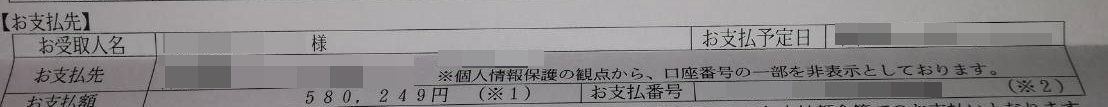 【お支払先】
お受取人名 様 お支払予定日
お支払先 ※個人情報保護の観点から、口座番号の一部を非表示としております。
お支払額 580,249円 (※1) お支払番号 (※2)